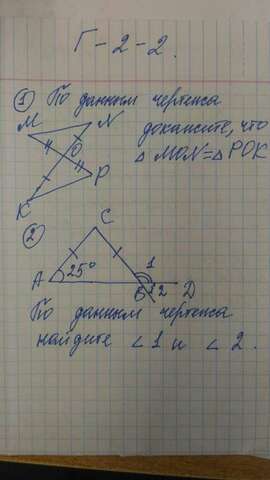 Г-2-2.
① По данным чертежа
докажите, что
△ MON = △ POK
M N
O
P
K
②
C
A 25° 1
B 2 D
По данным чертежа
найдите ∠1 и ∠2.